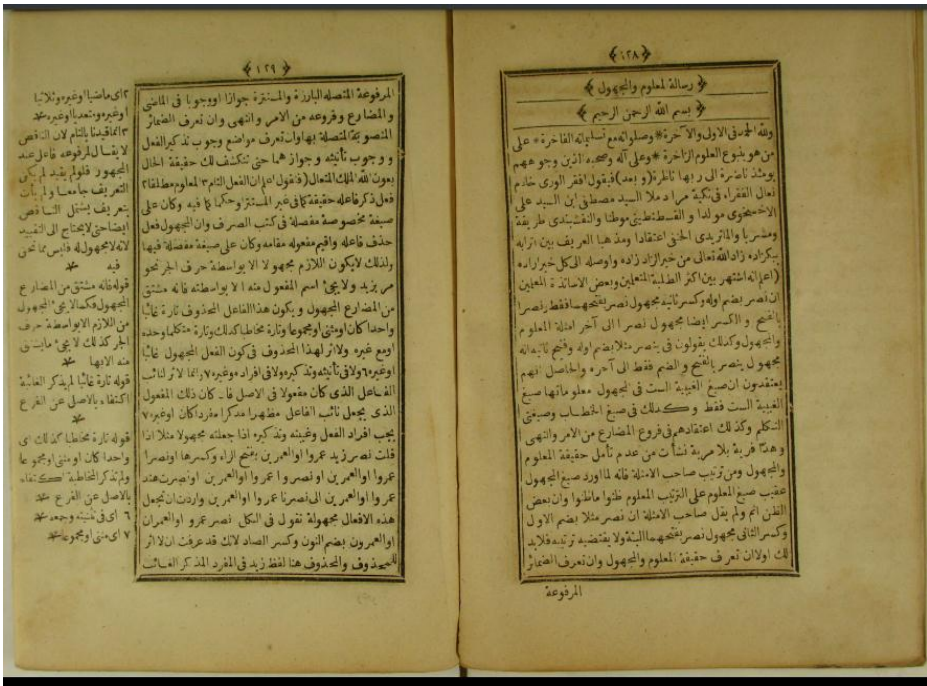 ﴿١٢٨﴾
﴿ رسالة لمعلوم والمجهول ﴾
﴿ بسم الله الرحمن الرحيم ﴾
ولله الحمد فى الاولى والآخرة * وصلواته مع تسليماته الفاخرة * على
من هو ينبوع العلوم الزاخرة * وعلى آله وصحبه الذين وجوههم
يومئذ ناضرة الى ربها ناظرة (وبعد) فيقول افقر الورى خادم
نعال الفقراء فى تكية مراد ملا السيد مصطفى ابن السيد على
الاخسخوى مولدا و القسطنطينى موطنا والنقشبندى طريقة
ومشربا والماتريدى الحنفى اعتقادا ومذهبا العريف بين اترابه
ببكزاده زاد الله تعالى من خير الزاد زاده واوصله الى كل خير اراده
(اعلم انه اشتهر بين اكثر الطلبة المتعلمين وبعض الاساتذة المعلمين
ان نصر بضم اوله وكسر ثانيه مجهول نصر بفتحهما فقط ونصرا
بالفتح و الكسر ايضا مجهول نصرا الى آخر امثلة المعلوم
والمجهول وكذلك يقولون فى ينصر مثلا بضم اوله وفتح ثانيه انه
مجهول ينصر بالفتح و الضم فقط الى آخره والحاصل انهم
يعتقدون ان صيغ الغيبة الست فى المجهول معلوماتها صيغ
الغيبة الست فقط وكذلك فى صيغ الخطاب وصيغتى
التكلم وكذلك اعتقادهم فى فروع المضارع من الامر والنهى
و هذا فرية بلا مرية نشأت من عدم تأمل حقيقة المعلوم
والمجهول ومن ترتيب صاحب الامثلة فانه لما اورد صيغ المجهول
عقيب صيغ المعلوم على الترتيب المعلوم ظنوا ما ظنوا وان بعض
الظن اثم ولم يقل صاحب الامثلة ان نصر مثلا بضم الاول
وكسر الثانى مجهول نصر بفتحهما البتة ولا يقتضيه ترتيبه فلابد
لك اولا ان تعرف حقيقة المعلوم والمجهول وان تعرف الضمائر
المرفوعة
﴿ ١٢٩ ﴾
المرفوعة المتصلة البارزة والمستترة جوازا اووجوبا فى الماضى
و المضارع و فروعه من الامر و النهى وان تعرف الضمائر
المنصوبة المتصلة بها وان تعرف مواضع وجوب تذكير الفعل
و وجوب تأنيثه وجوازهما حتى تنكشف لك حقيقة الحال
بعون الله الملك المتعال (فنقول اعلم ان الفعل التام ٣ المعلوم مطلقا ٢
فعل ذكر فاعله حقيقة كما فى غير المستتر او حكما كما فيه وكان على
صيغة مخصوصة مفصلة فى كتب الصرف وان المجهول فعل
حذف فاعله واقيم مفعوله مقامه وكان على صيغة مفصلة فيها
ولذلك لايكون اللازم مجهولا الا بواسطة حرف الجر نحو
مر بزيد ولا يجئ اسم المفعول منه الا بواسطته فانه مشتق
من المضارع المجهول و يكون هذا الفاعل المحذوف تارة غائبا
واحدا كان او مثنى او مجموعا وتارة مخاطبا كذلك وتارة متكلما وحده
اومع غيره ولا اثر لهذا المحذوف فى كون الفعل المجهول غائبا
اوغيره ٦ ولا فى تأنيثه وتذكيره ولا فى افراده وغيره ٧ وانما لاثر لنائب
الفاعل الذى كان مفعولا فى الاصل فان كان ذلك المفعول
الذى يجعل نائب الفاعل مظهرا مذكرا مفردا كان اوغيره ٧
يجب افراد الفعل وغيبته وتذكيره اذا جعلته مجهولا مثلا اذا
قلت نصر زيد عمروا او العمرين بفتح الراء وكسرها او نصرا
عمروا او العمرين او نصروا عمروا او العمرين او نصرت هند
عمروا او العمرين الى نصرنا عمروا او العمرين واردت ان تجعل
هذه الافعال مجهولة تقول فى الكل نصر عمرو او العمران
او العمرون بضم النون وكسر الصاد لانك قد عرفت ان لا اثر
للمحذوف والمحذوف هنا لفظ زيد فى المفرد المذكر الغائب
٢ اى ماضيا او غيره وثلاثيا
او غيره ومتعديا او غيره *
٣ انما قيدنا بالتام لان الناقص
لا يقال لمرفوعه فاعل عند
الجمهور فلو لم يقيد لم يكن
التعريف جامعا ولم يأت
بتعريف يشتمل الناقص
ايضا حتى لايحتاج الى التقييد
لانه لا مجهول له فليس مما نحن
فيه *
قوله فانه مشتق من المضارع
المجهول فكما لا يجئ المجهول
من اللازم الا بواسطة حرف
الجر كذلك لا يجئ ما يشتق
منه الا بها *
قوله تارة غائبا لم يذكر الغائبة
اكتفاء بالاصل عن الفرع
*
قوله تارة مخاطبا كذلك اى
واحدا كان او مثنى او مجموعا
ولم تذكر المخاطبة اكتفاء
بالاصل عن الفرع *
٦ اى فى تثنيته وجمعه *
٧ اى مثنى او مجموعا *